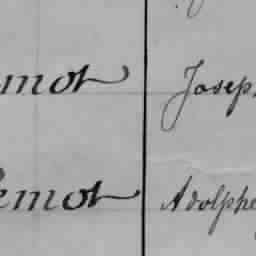 mot Joseph
emot Adolphe